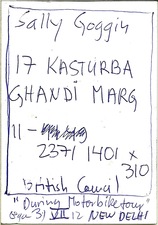 Sally Goggin
17 KASTURBA
GHANDI MARG
11 -
2371 1401 x
310
British Council
"During Motorbike tour"
31 VII 12 NEW DELHI